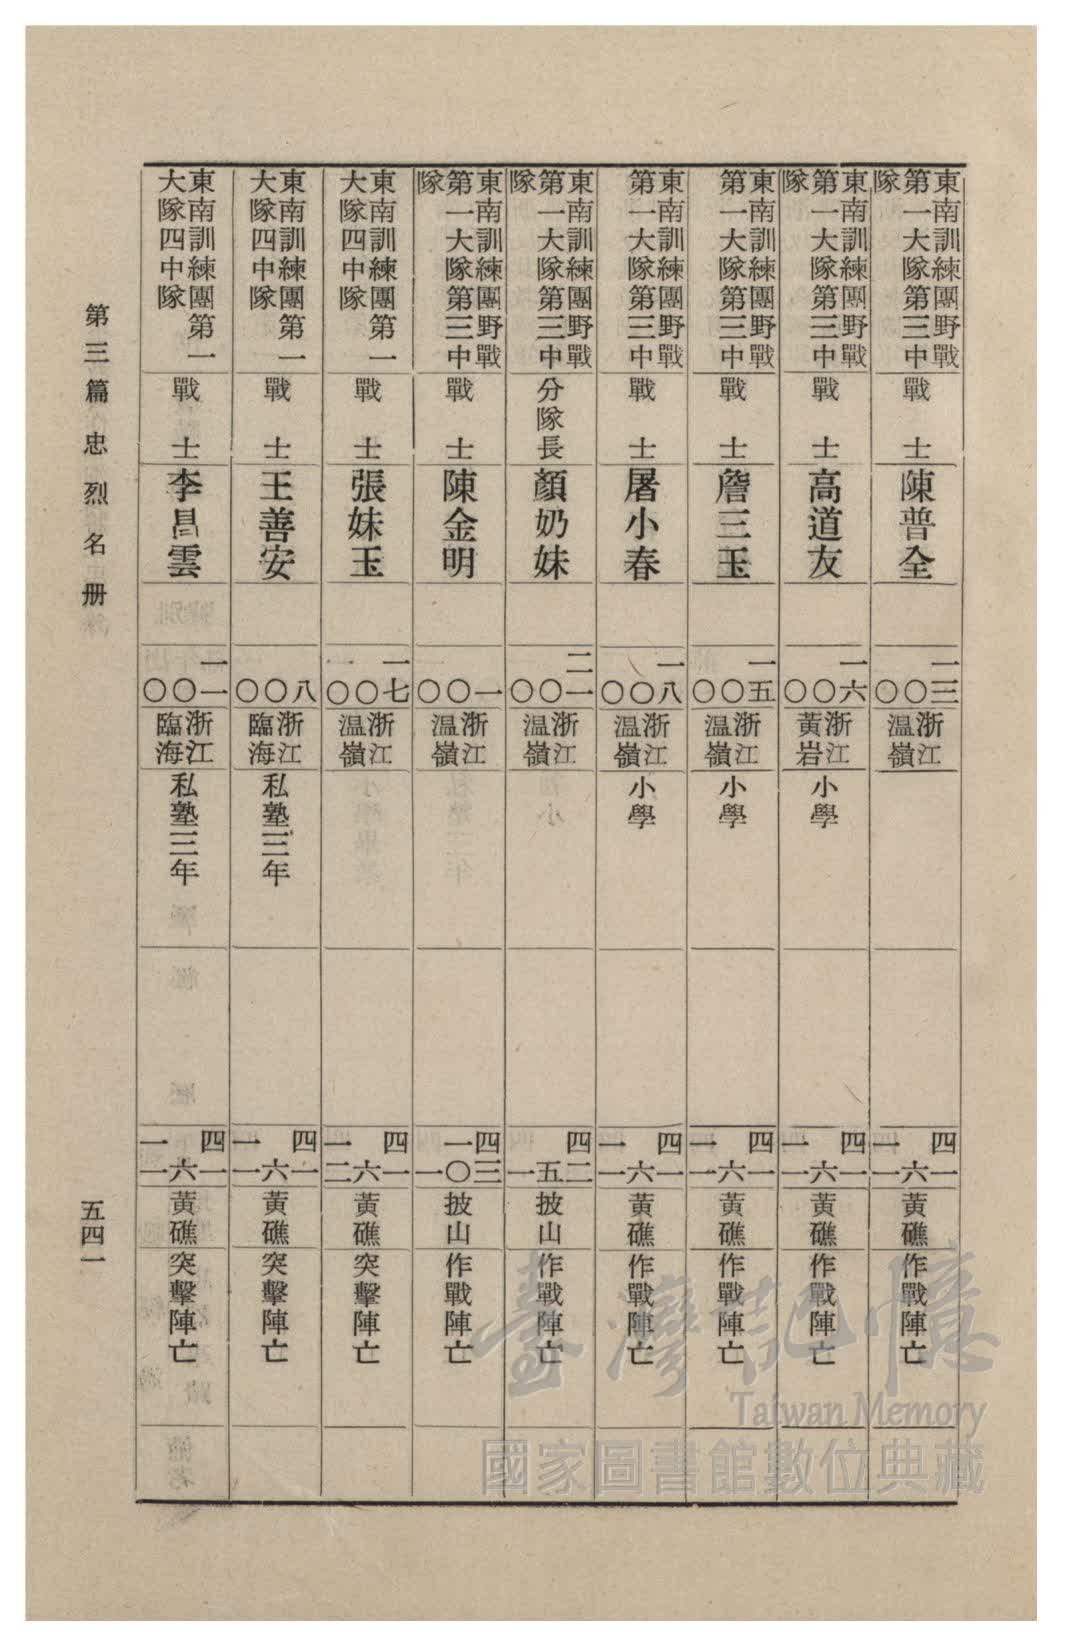 東南訓練團野戰
第一大隊第三中
隊
戰士
陳普全
一三
○
○
浙江
溫嶺
四一
六
一一
黃礁
作戰陣亡
東南訓練團野戰
第一大隊第三中
隊
戰士
高道友
一六
○
○
浙江
黃岩
小學
四一
六
一一
黃礁
作戰陣亡
東南訓練團野戰
第一大隊第三中
戰士
詹三玉
一五
○
○
浙江
溫嶺
小學
四一
六
一一
黃礁
作戰陣亡
東南訓練團野戰
第一大隊第三中
戰士
屠小春
一八
○
○
浙江
溫嶺
小學
四一
六
一一
黃礁
作戰陣亡
東南訓練團野戰
第一大隊第三中
隊
分隊長
顏奶妹
二一
○
○
浙江
溫嶺
四二
五
一
披山
作戰陣亡
東南訓練團野戰
第一大隊第三中
隊
戰士
陳金明
一
○
○
浙江
溫嶺
四三
一○
一
披山
作戰陣亡
東南訓練團第一
大隊四中隊
戰士
張妹玉
一七
○
○
浙江
溫嶺
四一
六
一二
黃礁
突擊陣亡
東南訓練團第一
大隊四中隊
戰士
王善安
八
○
○
浙江
臨海
私塾三年
四一
六
一一
黃礁
突擊陣亡
東南訓練團第一
大隊四中隊
戰士
李昌雲
一一
○
○
浙江
臨海
私塾三年
四一
六
一一
黃礁
突擊陣亡
第三篇 忠烈名册
五四一
臺灣記憶
Taiwan Memory
國家圖書館數位典藏